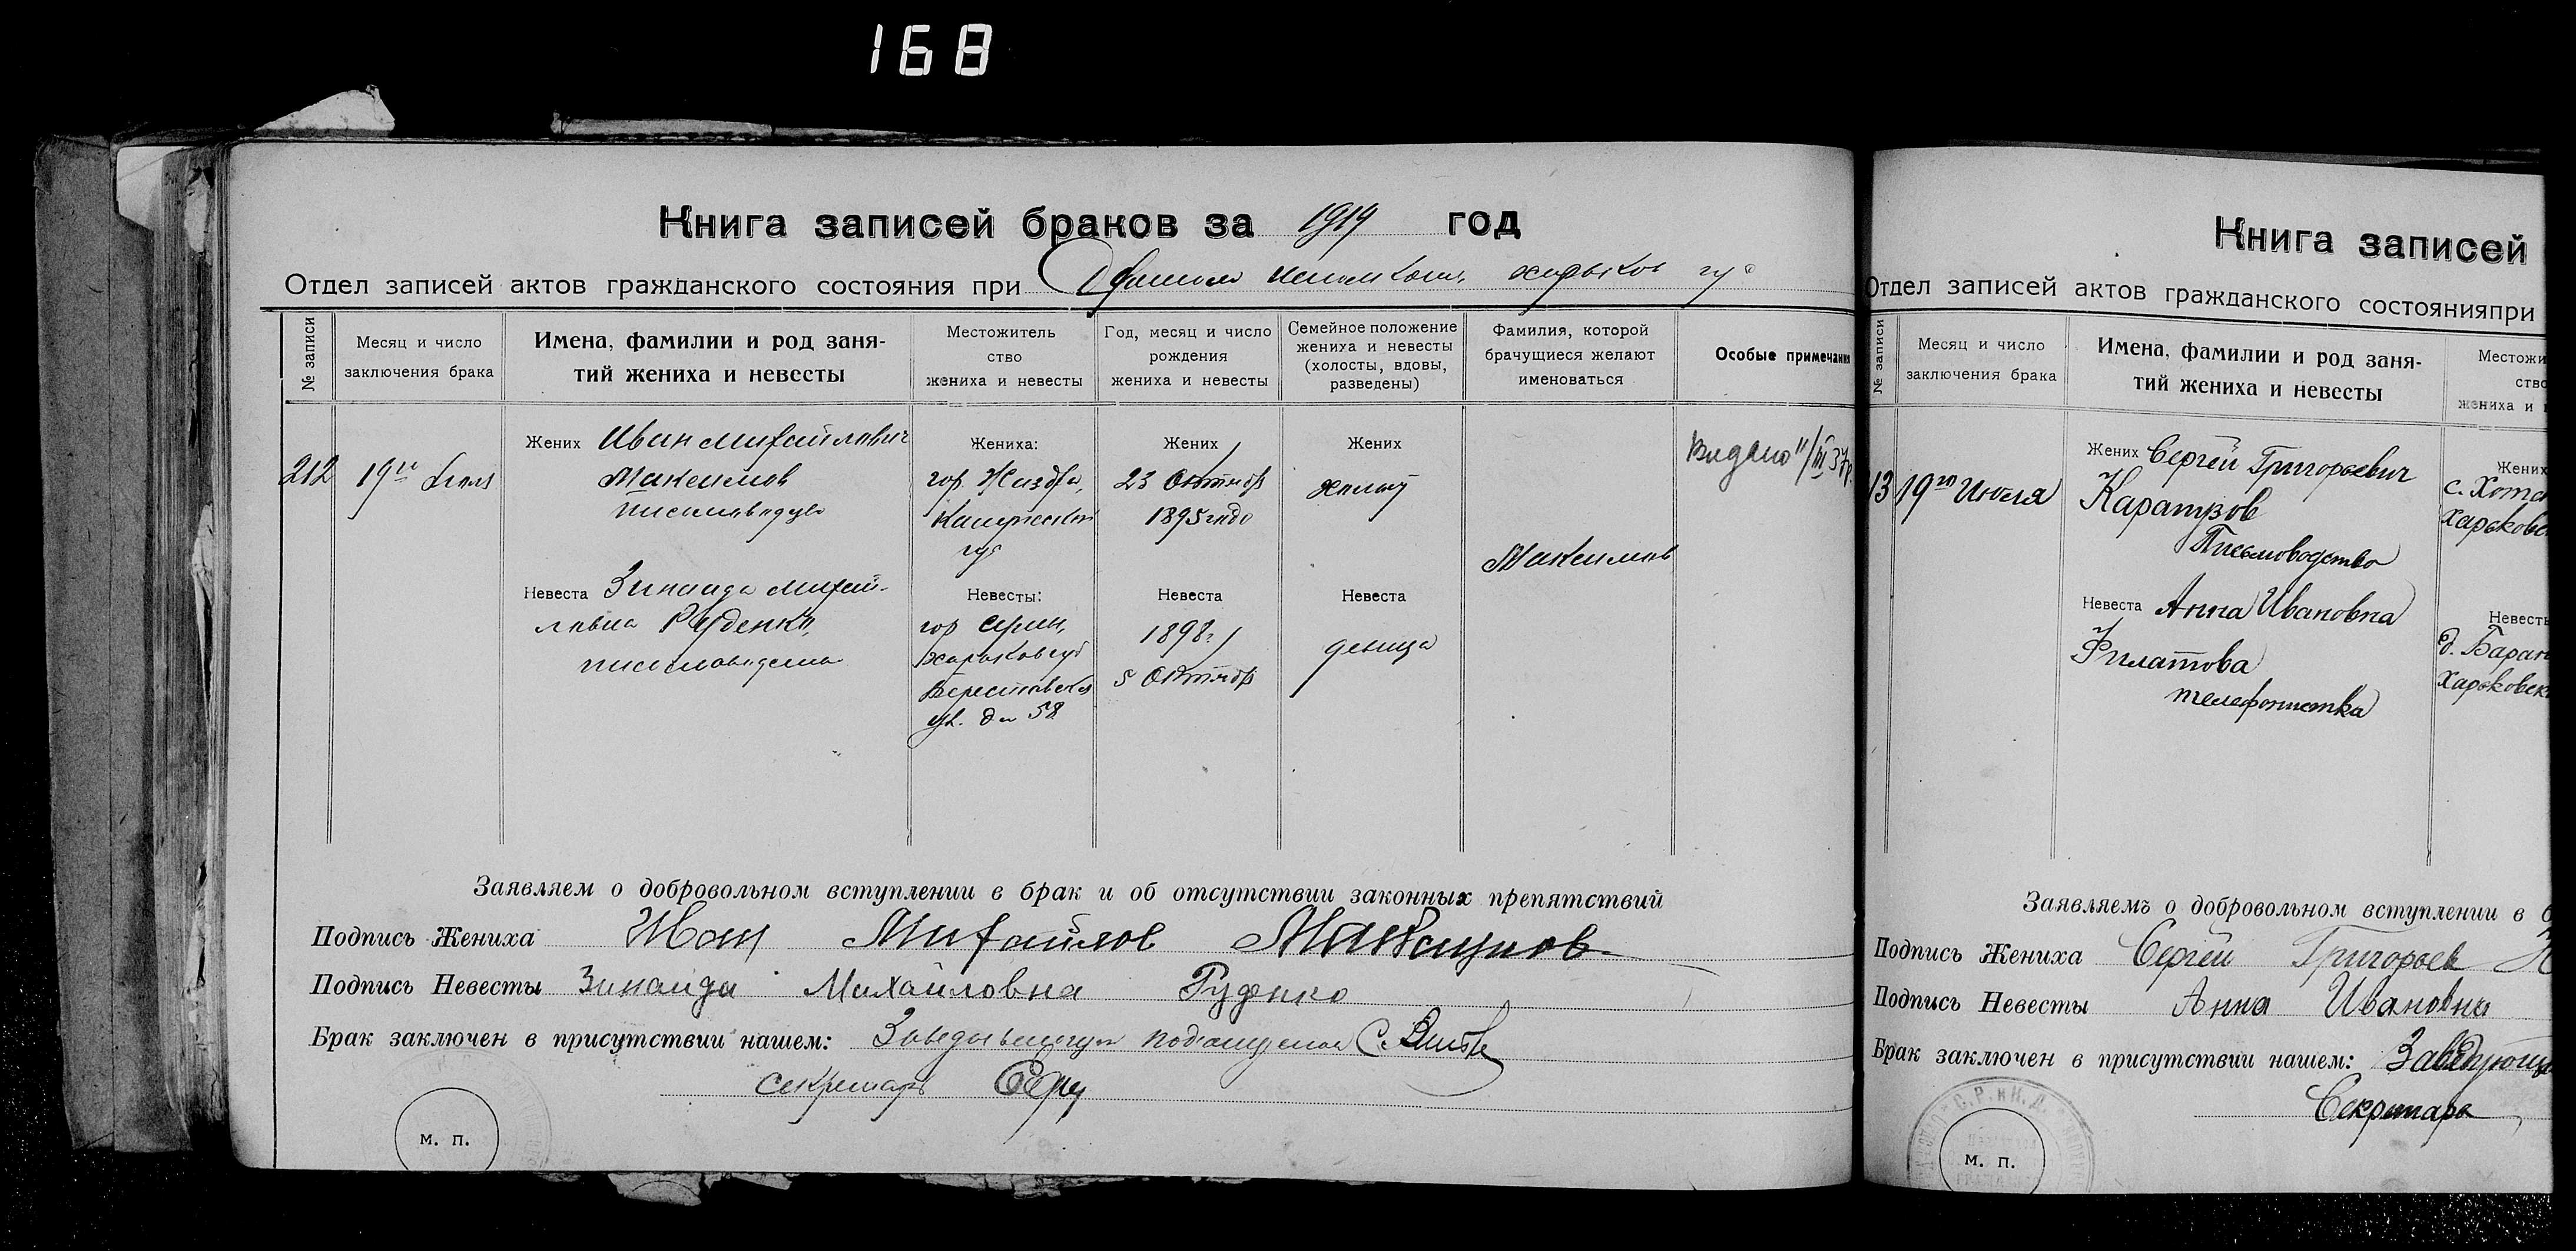 168
Книга записей браков за 1919 год
Отдел записей актов гражданского состояния при
№ записи
Месяц и число
заключения брака
Имена, фамилии и род заня-
тий жениха и невесты
Местожитель
ство
жениха и невесты
Год, месяц и число
рождения
жениха и невесты
Семейное положение
жениха и невесты
(холосты, вдовы,
разведены)
Фамилия, которой
брачущиеся желают
именоваться
Особые примечани
212
19го Июля
Жених Иван Михайлович
Максимов
Невеста Зинаида Михай-
ловна Руденко,
Жениха:
гор. Жиздра,
Калужской
губ
Невесты:
гор
Харьков губ
Берестовская
ул. д. 58
Жених
23 Октября
1895 года
Невеста
1898 г.
5 Октября
Жених
холост
Невеста
девица
Максимов
Видано 11/III 37р.
Заявляем о добровольном вступлении в брак и об отсутствии законных препятствий
Подпись Жениха Иван Михайлов Максимов
Подпись Невесты Зинаида Михайловна Руденко
Брак заключен в присутствии нашем:
секретарь
м. п.
Книга записей
Отдел записей актов гражданского состоянияпри
№ записи
Месяц и число
заключения брака
Имена, фамилии и род заня-
тий жениха и невесты
Местожи
ство
жениха и н
13
19го Июля
Жених Сергей Григорьевич
Каратузов
Письмоводство
Невеста Анна Ивановна
Филатова
телефонистка
Жених
с. Хот
Харьковс
Невест
д. Баран
Харьковск
Заявляемъ о добровольном вступлении в б
Подпись Жениха Сергей Григорьев
Подпись Невесты Анна Ивановна
Брак заключен в присутствии нашем: Заведующ
Секретарь
С. Р. и К. Д.
м. п.